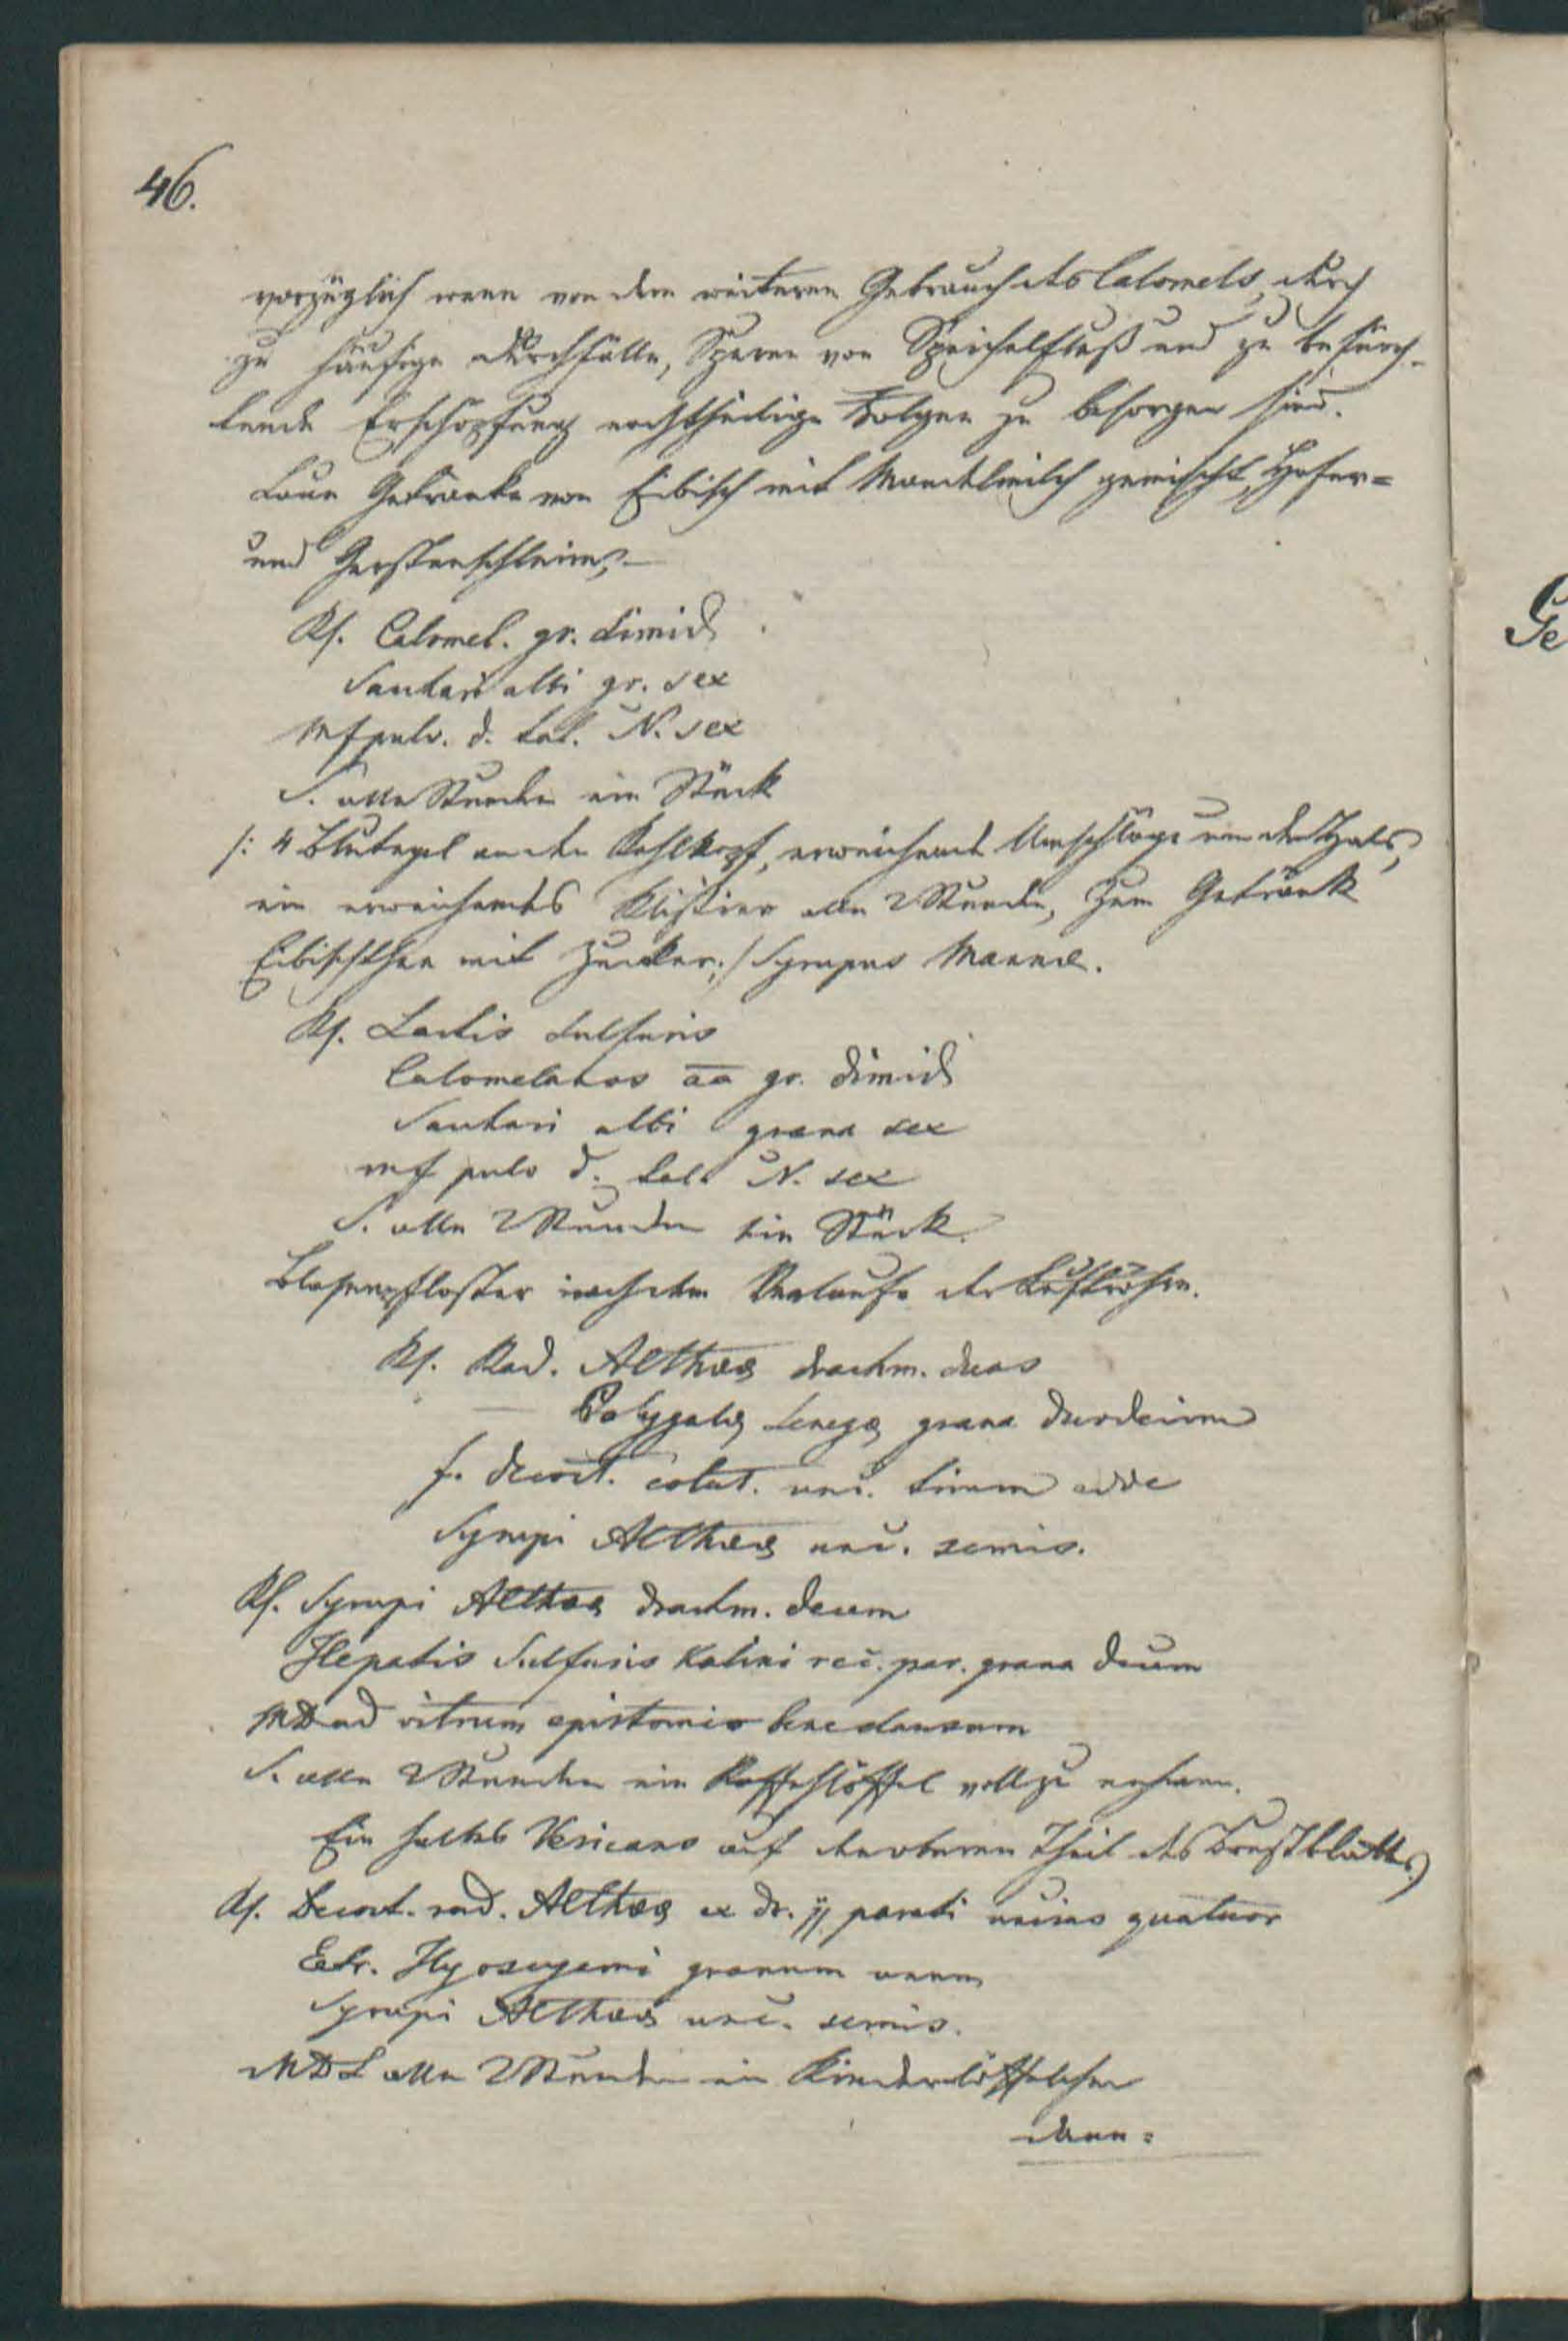 46.
vorzüglich wenn von dem weiteren Gebrauch des Calomels, durch
zu häufige Durchfälle, Spuren von Speichelfluß und zu befürch-
tende Erschöpfung nachtheilige Folgen zu besorgen sind.
Laue Getränke von Eibisch mit Mandelmilch gemischt, Hafer=
und Gerstenschleim,–
Rf. Calomel. gr. dimid
Sachari albi gr. sex
Mf pulv. d. tal. N. sex
S. alle Stunden ein Stück
/: 4 Blutegel an den Kehlkopf, erweichende Umschläge um den Hals,
ein erweichendes Klistier alle 2 Stunden, zum Getränk
Eibischthee mit Zucker :/ Syrupus Mannæ.
Rf. Lactis sulfuris
Calomelanos aa gr. dimid
Sachari albi grana sex
mf pulv d. tal. N. sex
S. alle 2 Stunden ein Stück.
Blasenpflaster nach dem Verlaufe der Luftröhre.
Rf. Rad. Altheæ drachm. duas
— Polygalæ senegæ grana duodecim
f. decoct. colat. unc. trium adde
Syrupi Altheæ unc. semis.
Rf. Syrupi Altheæ drachm. decem
Hepatis Sulfuris Kalini rec. par. grana decem
MD ad vitrum epistomio bene clausum
S. alle 2 Stunden ein Kaffehlöffel voll zu nehmen.
Ein halbes Vesicans auf den oberen Theil des Brustblattes
Rf. Decoct. rad. Altheæ ex dr. jj parati uncias quatuor
Extr. Hyoscyami granum unum
Syrupi Altheæ unc. semis.
MDS alle 2 Stunden ein Kinderlöffelchen
dann=
Ge